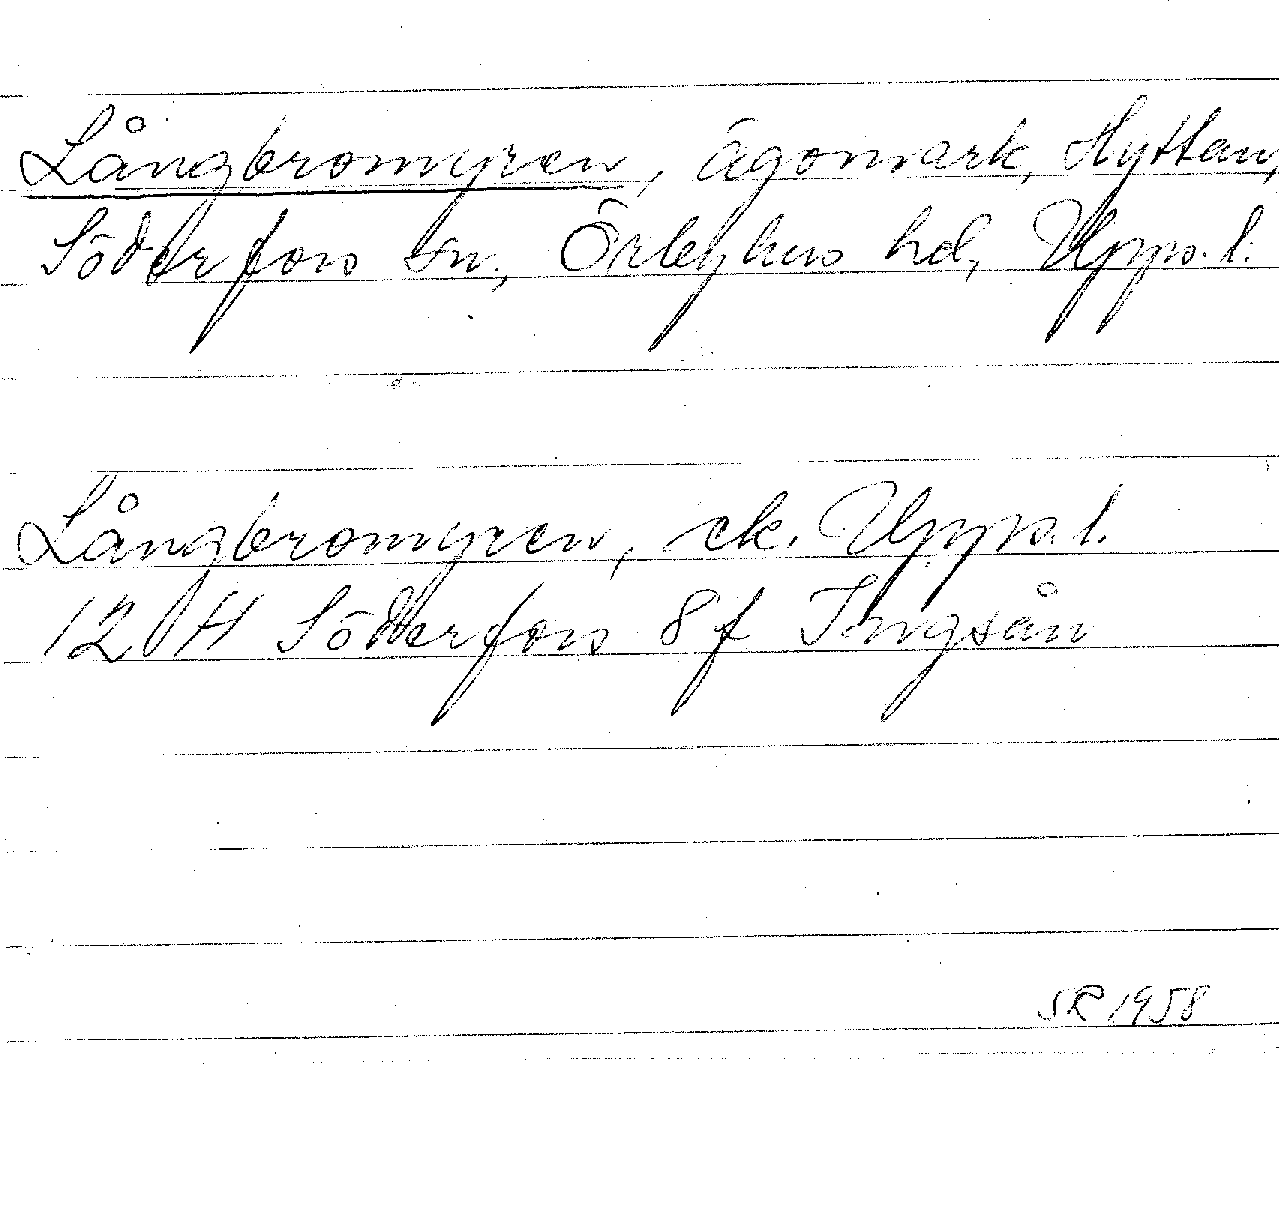 Långbromyren, ägomark, Hyttan,
Söderfors sn, Örbyhus hd, Uppl.
Långbromyren, ek. Uppl.
12 H Söderfors 8f Ingsån
SR 1958